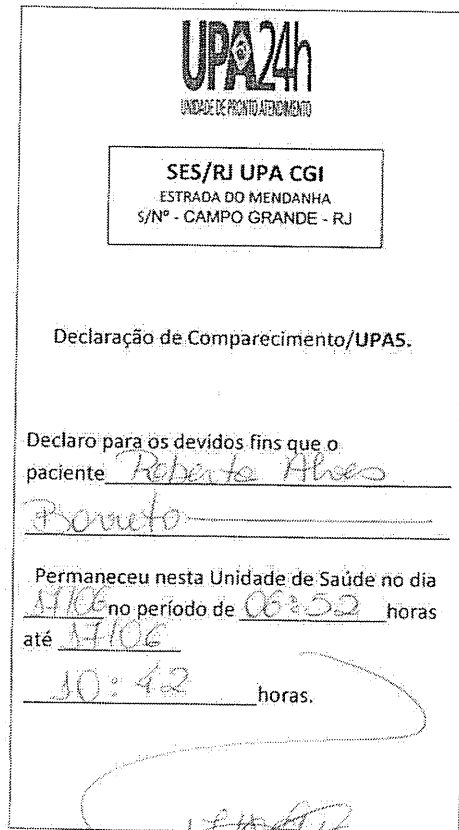 UPA24h
UNIDADE DE PRONTO ATENDIMENTO
SES/RJ UPA CGI
ESTRADA DO MENDANHA
S/Nº - CAMPO GRANDE - RJ
Declaração de Comparecimento/UPAS.
Declaro para os devidos fins que o
paciente Roberta Alves
Barreto
Permaneceu nesta Unidade de Saúde no dia
17/06 no período de 06:52 horas
até 17/06
10:42 horas.